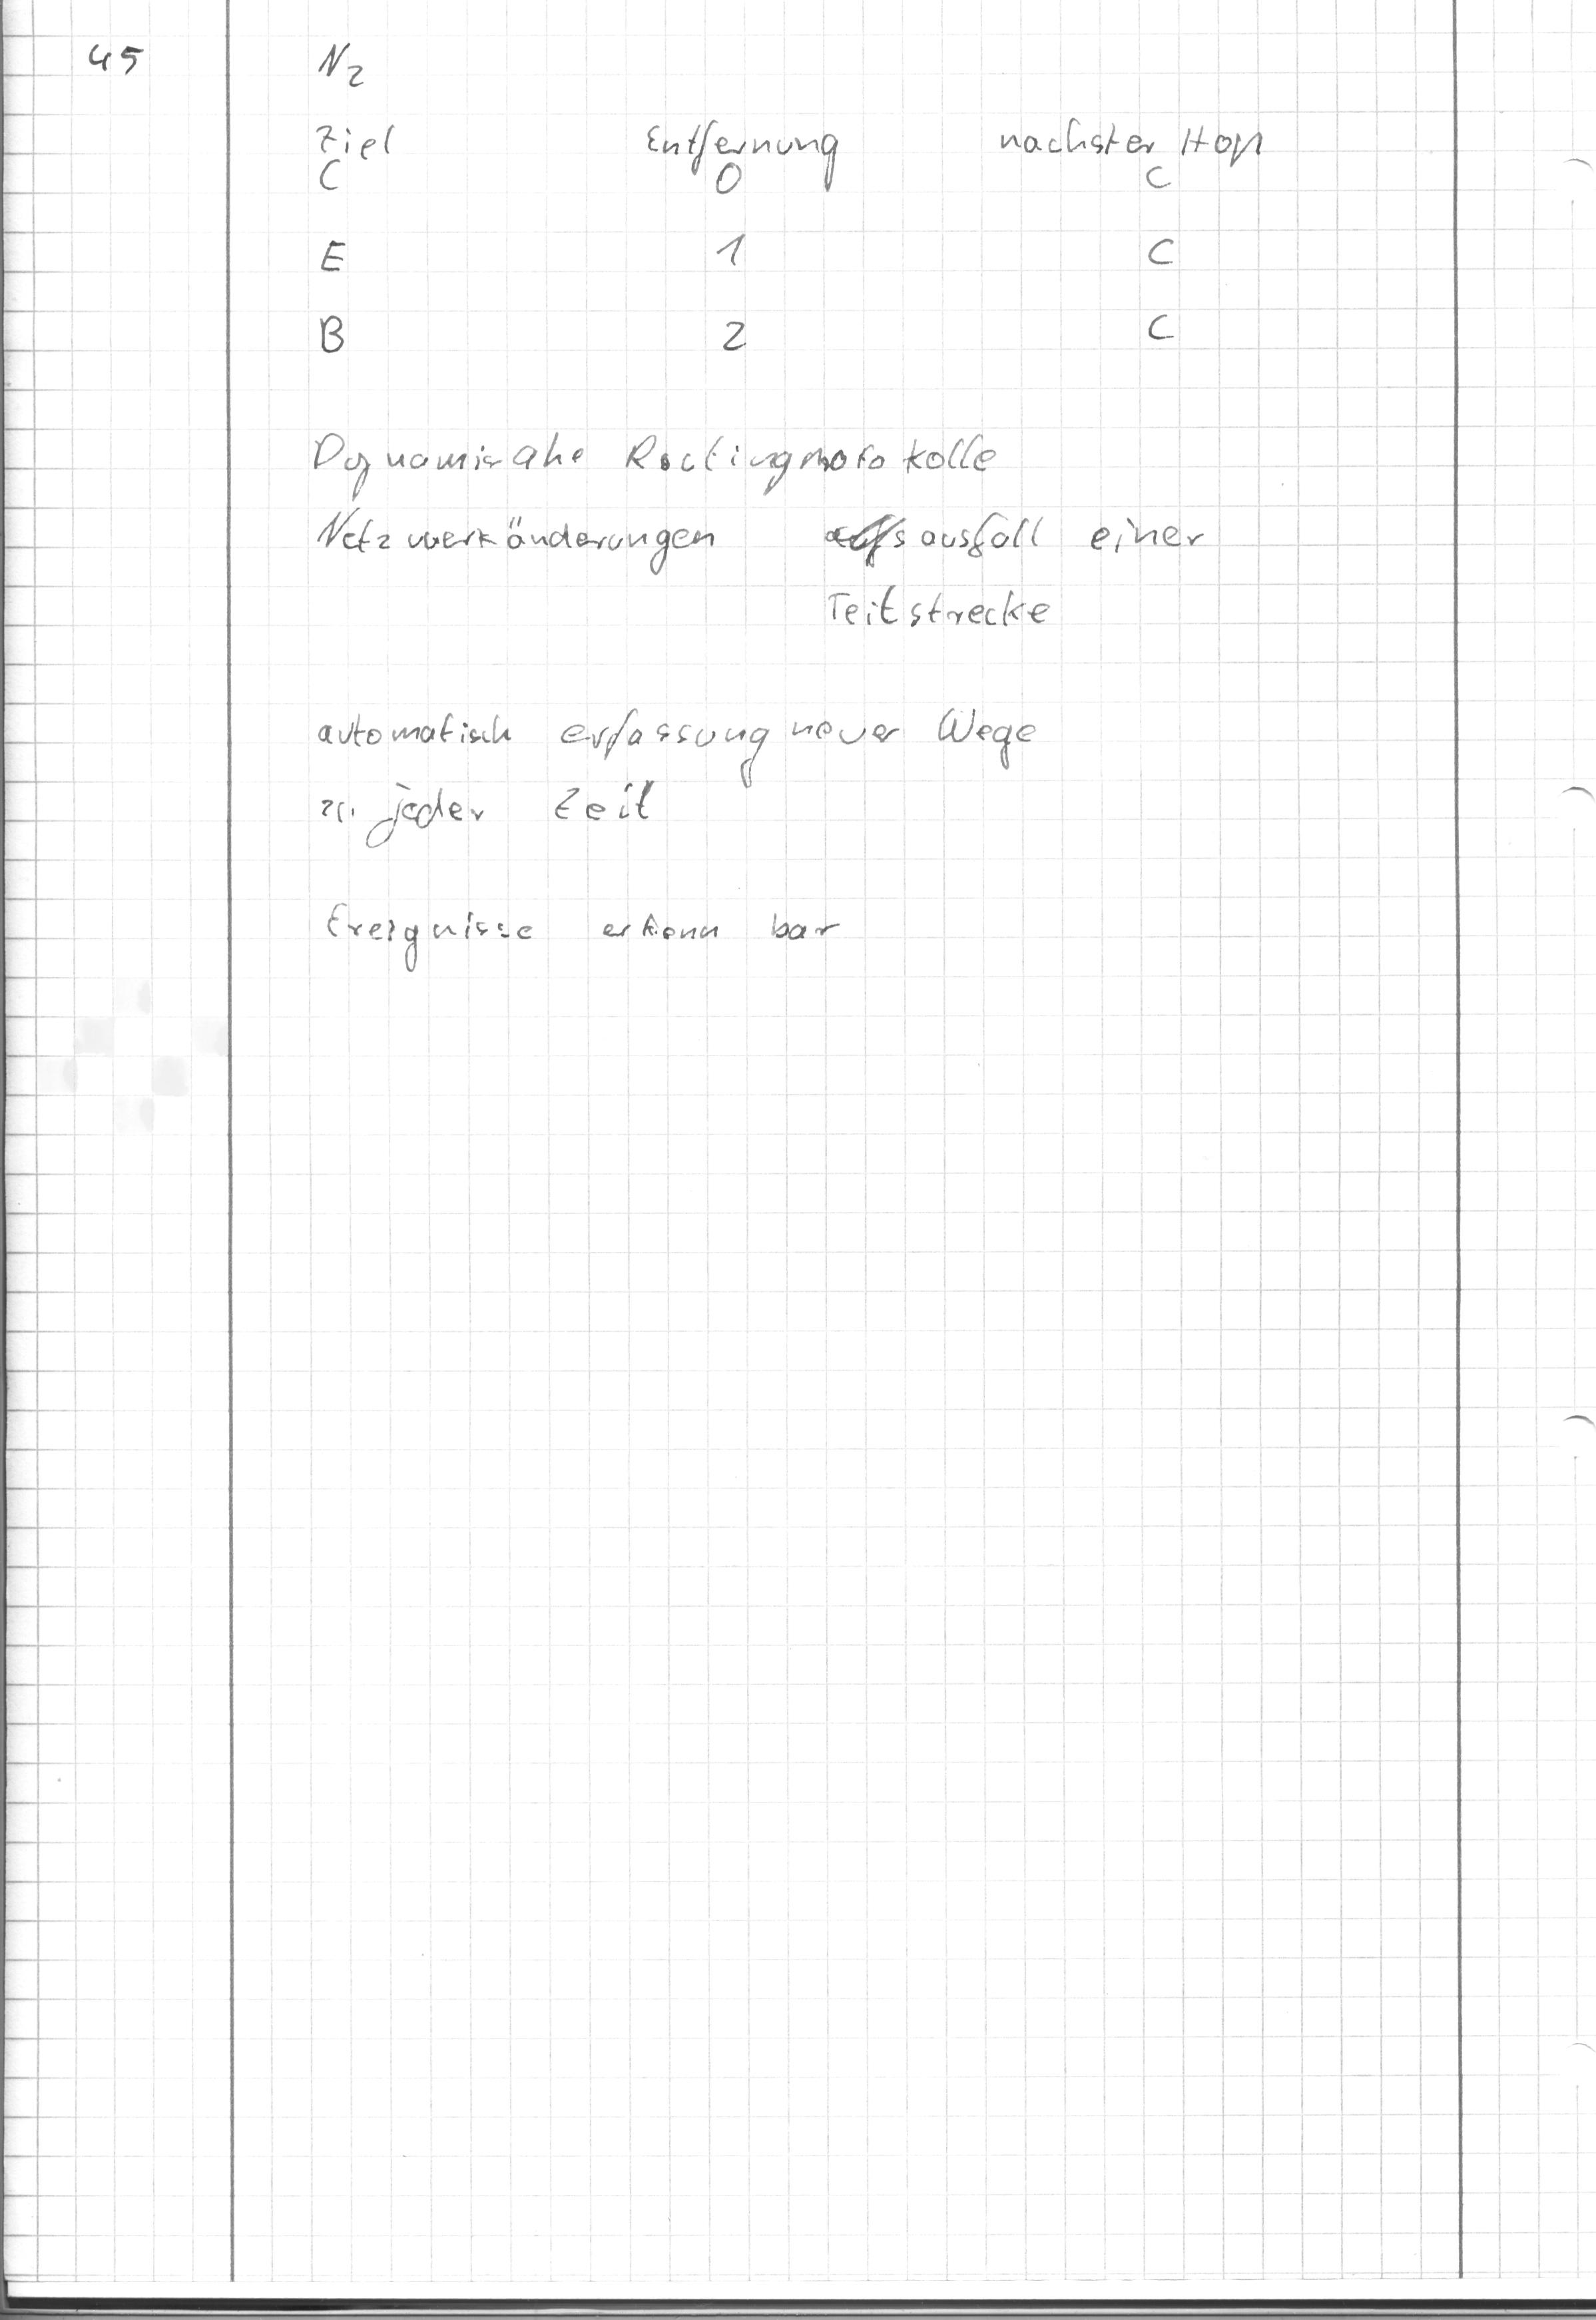 45 N2
Ziel Entfernung nachster Hop
C 0 C
E 1 C
B 2 C
Dynamische Routingprotokolle
Netzwerkänderungen ausfall einer
Teilstrecke
automatisch erfassung neuer Wege
zu jeder Zeit
Ereignisse erkenn bar